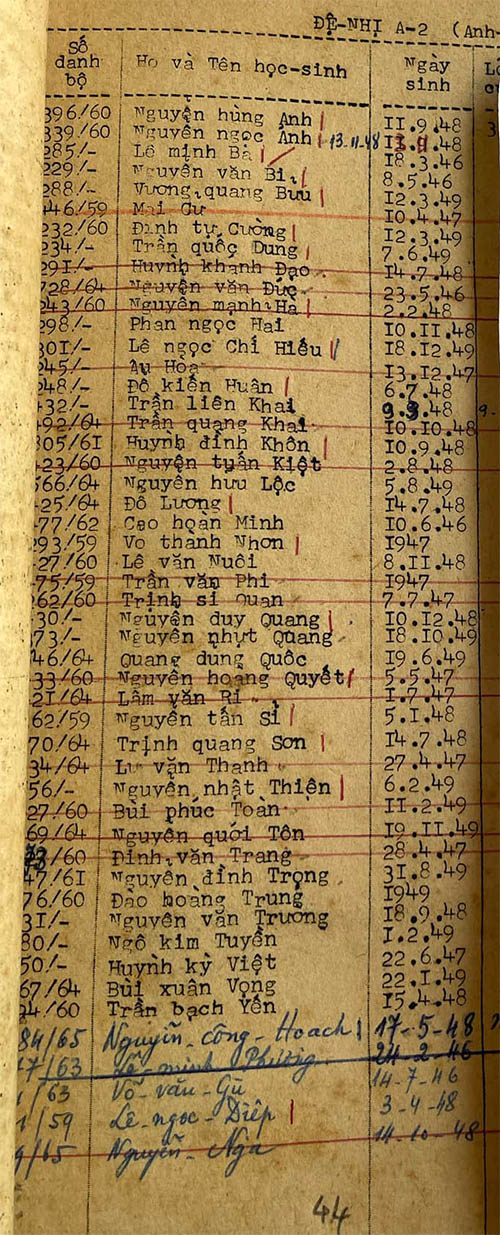 ĐỆ-NHỊ A-2 (Anh-
Số danh bộ Họ và Tên học-sinh Ngày sinh
396/60 Nguyện hùng Anh 11.9.48
339/60 Nguyên ngọc Ánh 13-11-48 .48
285/- Lê minh Bà 18.3.46
229/- Nguyên văn Bi 8.5.46
288/- Vương quang Bưu 12.3.49
446/59 Mai Cư 10.4.47
232/60 Đinh tự Cường 12.3.49
234/- Trần quốc Dung 7.6.49
291/- Huỳnh khanh Đạo 14.7.48
728/64 Nguyên văn Đức 23.5.46
243/60 Nguyên mạnh Hà 2.2.48
298/- Phan ngọc Hai 10.11.48
301/- Lê ngọc Chí Hiếu 18.12.49
245/- Au Hòa 13.12.47
248/- Đô kiến Huân 6.7.48
432/- Trần liên Khai 9. .48 9-
492/64 Trần quang Khai 10.10.48
305/61 Huynh đỉnh Khôn 10.9.48
423/60 Nguyện tuấn Kiệt 2.8.48
566/64 Nguyên hưu Lộc 5.8.49
425/64 Đô Lương 14.7.48
477/62 Cao hoàn Minh 10.6.46
293/59 Vo thành Nhơn 1947
427/60 Lê văn Nuôi 8.11.48
75/59 Trần văn Phi 1947
262/60 Trịnh si Quan 7.7.47
30/- Nguyên duy Quang 10.12.48
73/- Nguyên nhựt Quang 18.10.49
46/64 Quang dung Quốc 19.6.49
33/60 Nguyên hoang Quyết 5.5.47
21/64 Lâm văn Ri 1.7.47
62/59 Nguyên tấn Sỉ 5.1.48
70/64 Trịnh quang Sơn 14.7.48
34/64 Lư văn Thanh 27.4.47
56/- Nguyên nhật Thiện 6.2.49
27/60 Bùi phúc Toàn 11.2.49
69/64 Nguyên quới Tôn 19.11.49
/60 Đinh văn Trang 28.4.47
47/61 Nguyên đỉnh Trọng 31.8.49
76/60 Đào hoàng Trung 1949
31/- Nguyên văn Trương 18.9.48
80/- Ngô kim Tuyền 1.2.49
50/- Huỳnh kỳ Việt 22.6.47
67/64 Bùi xuân Vọng 22.1.49
/60 Trần bạch Yến 15.4.48
84/65 Nguyễn-công-Hoach 17-5-48
7/63 Lê-minh Phương 24-2-46
1/63 Võ-văn-Gù 14-7-46
1/59 Lê-ngọc-Diệp 3-4-48
9/65 Nguyễn-Nga 14-10-48
44